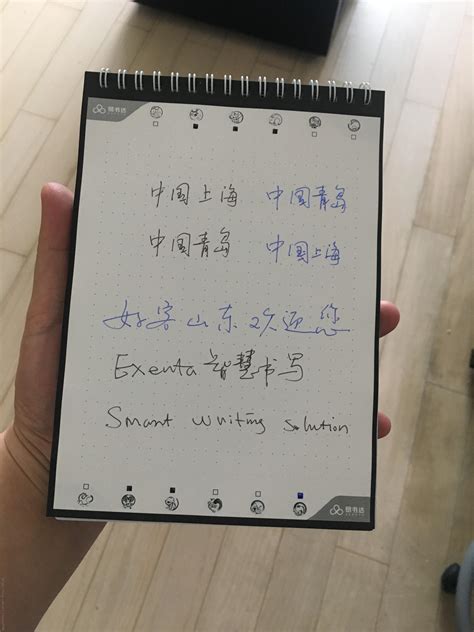 中国上海 中国青岛
中国青岛 中国上海
好客山东欢迎您
Exenta智慧书写
Smart writing solution